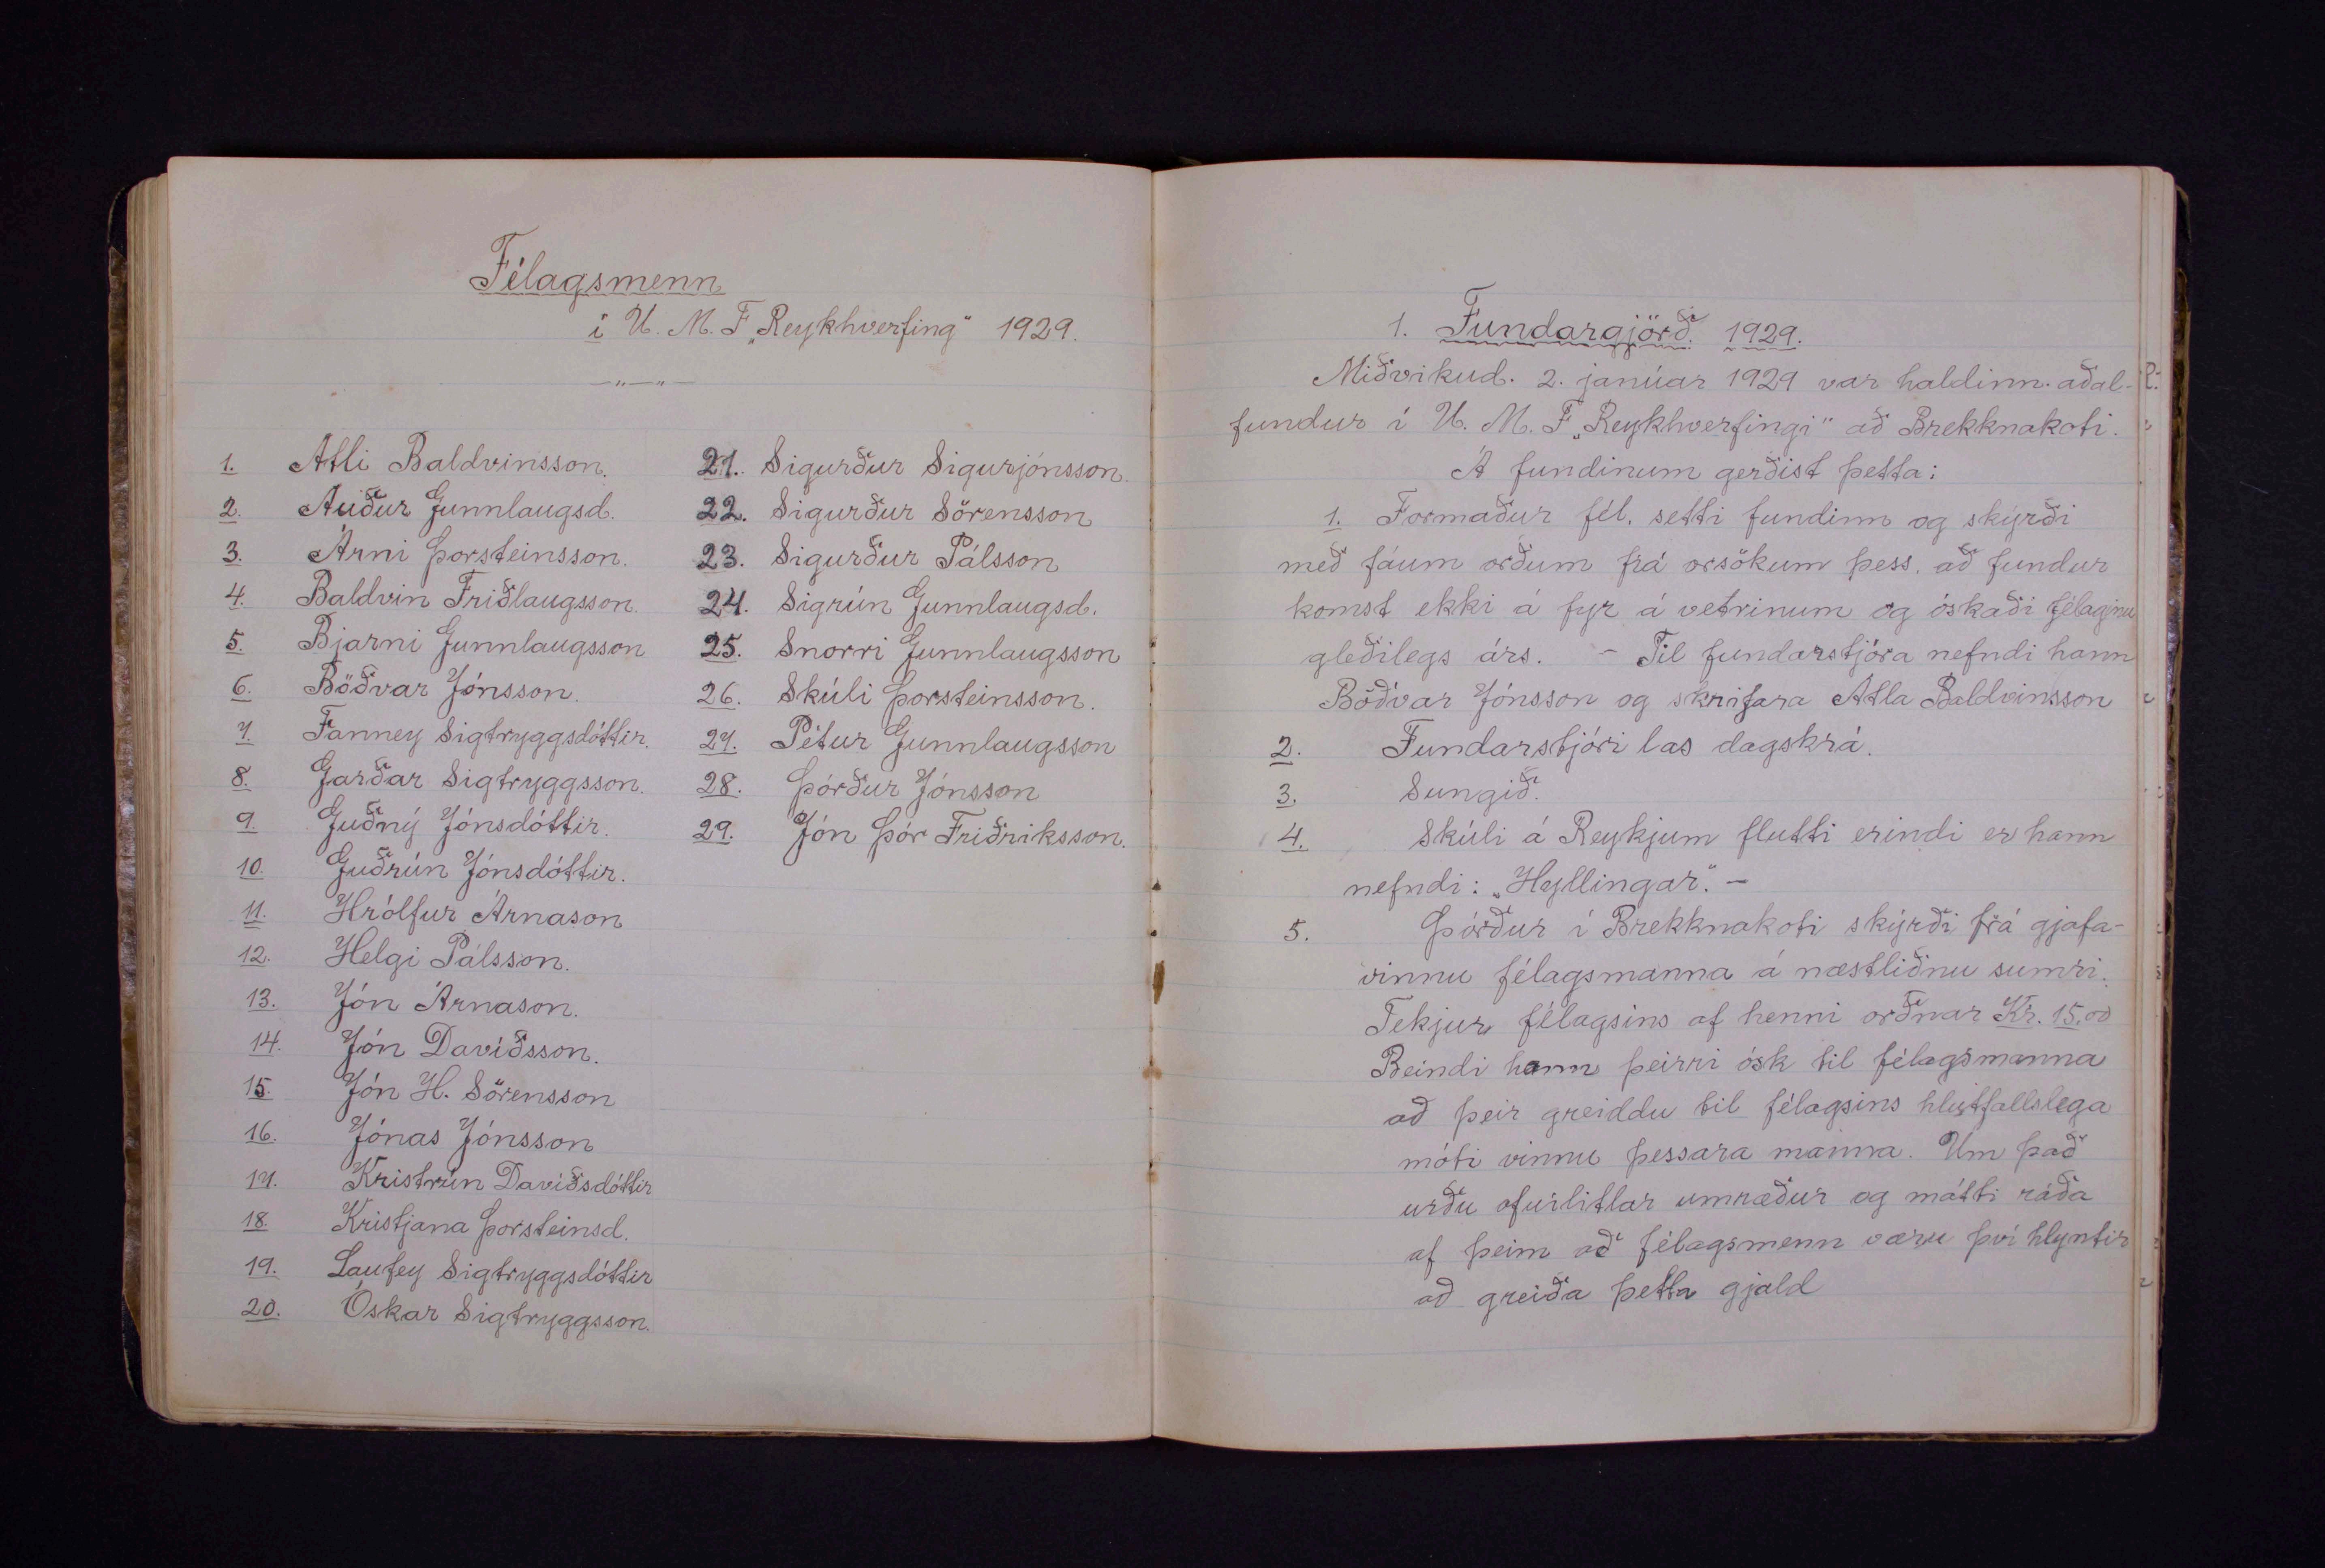 Félagsmenn
í U. M. F. „Reykhverfing" 1929.
— „ — „ —
1. Atli Baldvinsson.
2. Auður Gunnlaugsd.
3. Árni Þorsteinsson.
4. Baldvin Friðlaugsson.
5. Bjarni Gunnlaugsson
6. Böðvar Jónsson.
7. Fanney Sigtryggsdóttir.
8. Garðar Sigtryggsson.
9. Guðný Jónsdóttir.
10. Guðrún Jónsdóttir.
11. Hrólfur Árnason
12. Helgi Pálsson.
13. Jón Árnason.
14. Jón Davíðsson.
15. Jón H. Sörensson
16. Jónas Jónsson
17. Kristrún Davíðsdóttir
18. Kristjana Þorsteinsd.
19. Laufey Sigtryggsdóttir
20. Óskar Sigtryggsson.
21. Sigurður Sigurjónsson.
22. Sigurður Sörensson
23. Sigurður Pálsson
24. Sigrún Gunnlaugsd.
25. Snorri Gunnlaugsson
26. Skúli Þorsteinsson.
27. Pétur Gunnlaugsson
28. Þórður Jónsson
29. Jón Þór Friðriksson.
1. Fundargjörð. 1929.
Miðvikud. 2. janúar 1929 var haldinn aðal-
fundur í U. M. F. „Reykhverfingi" að Brekknakoti.
Á fundinum gerðist þetta:
1. Formaður fél. setti fundinn og skýrði
með fáum orðum frá orsökum þess, að fundur
komst ekki á fyr á vetrinum og óskaði félaginu
gleðilegs árs. - Til fundarstjóra nefndi hann
Böðvar Jónsson og skrifara Atla Baldvinsson
2. Fundarstjóri las dagskrá.
3. Sungið.
4. Skúli á Reykjum flutti erindi er hann
nefndi: „Hyllingar". -
5. Þórður í Brekknakoti skýrði frá gjafa-
vinnu félagsmanna á næstliðnu sumri.
Tekjur félagsins af henni orðnar Kr. 15.00
Beindi hann þeirri ósk til félagsmanna
að þeir greiddu til félagsins hlutfallslega
móti vinnu þessara manna. Um það
urðu ofurlitlar umræður og mátti ráða
af þeim að félagsmenn væru því hlyntir
að greiða þetta gjald